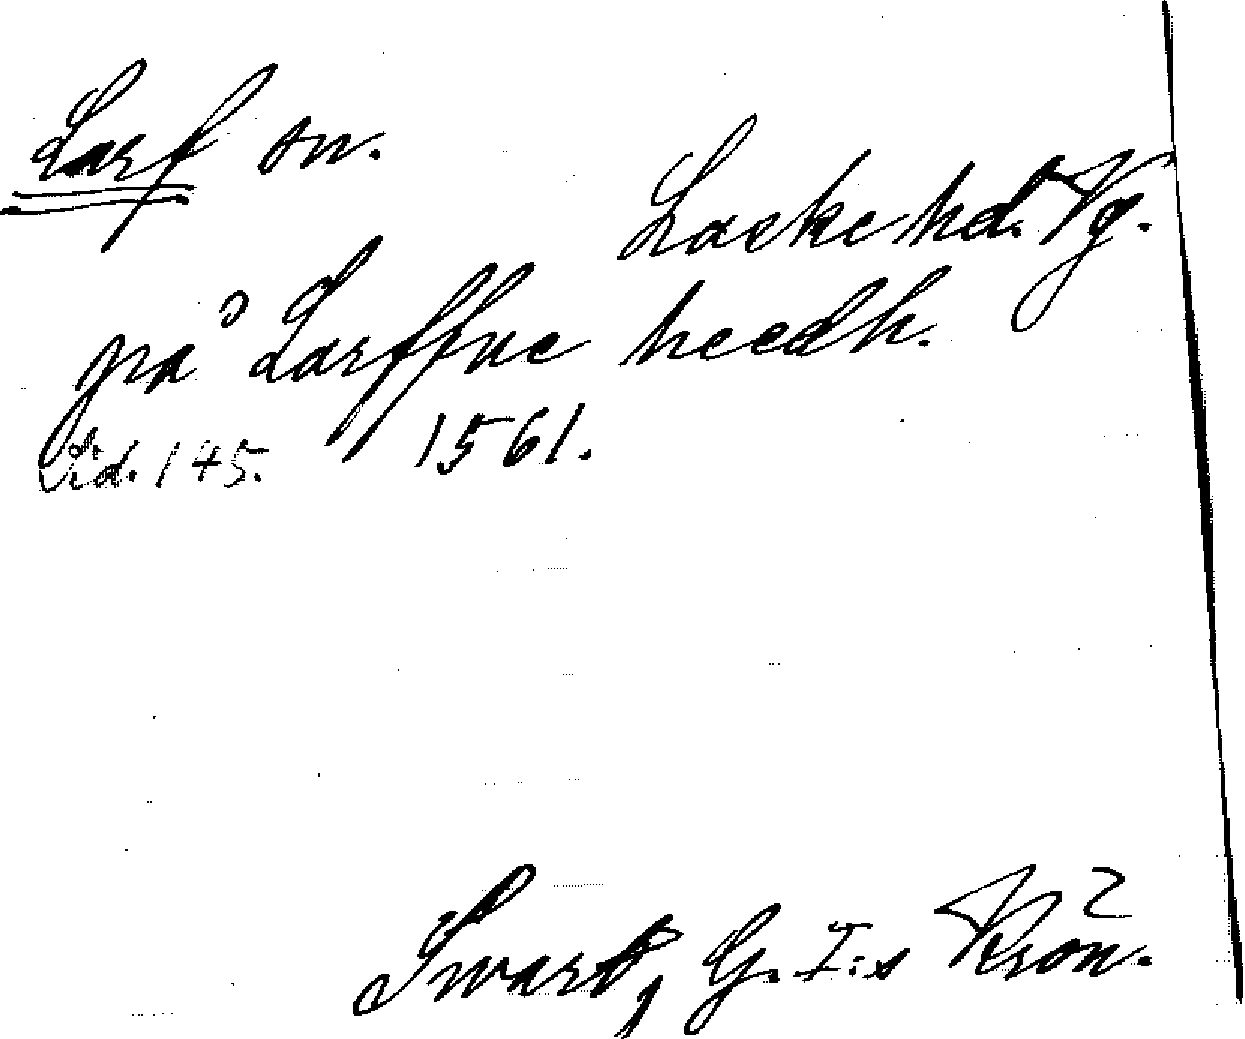 Larf sn.
Laske hd. Vg.
på Larffue heedh.
Sid. 145. 1561.
Swart, G. I:s Krön.²